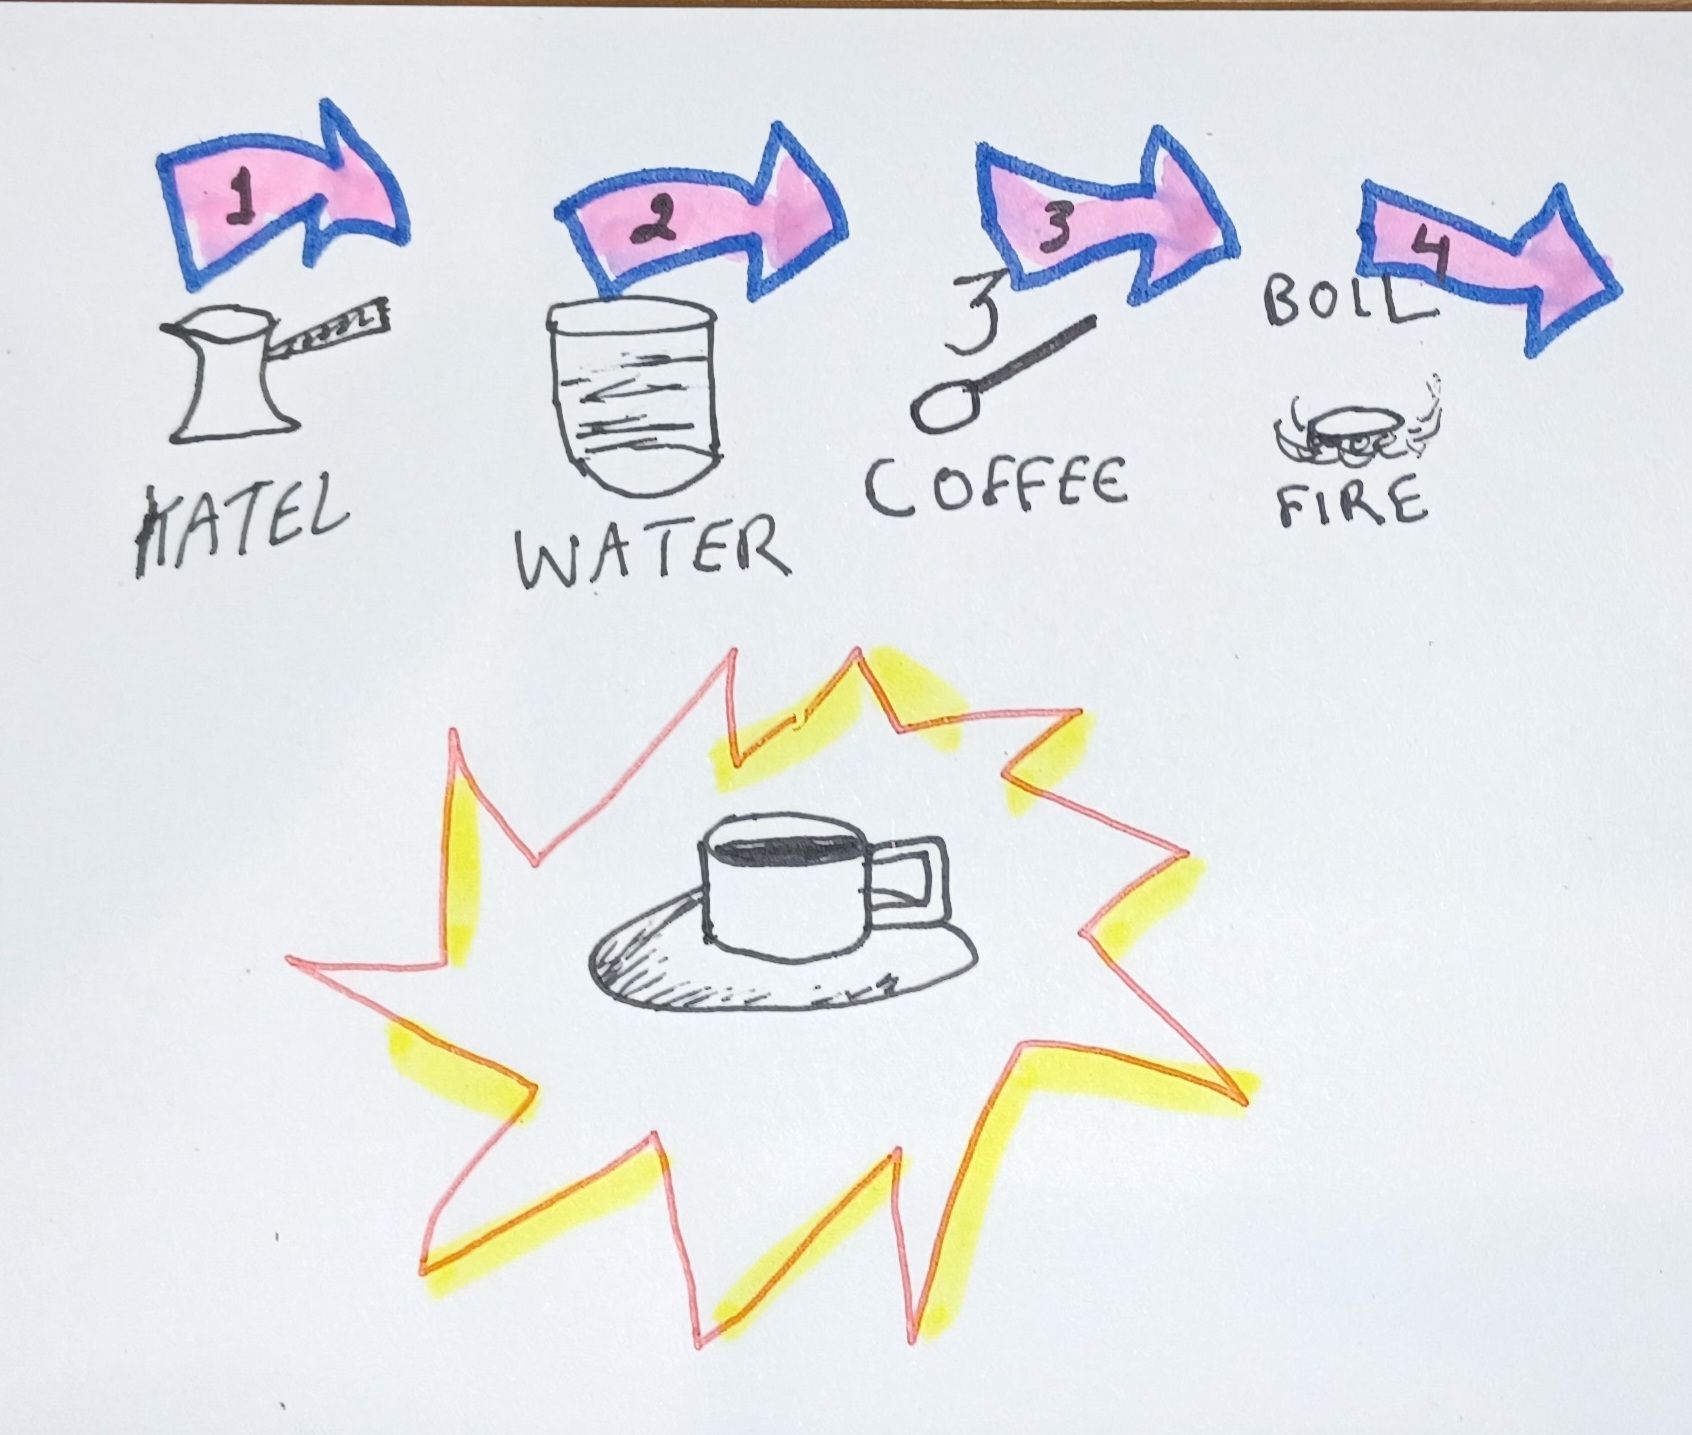 1
2
3
4
3
BOIL
KATEL
WATER
COFFEE
FIRE